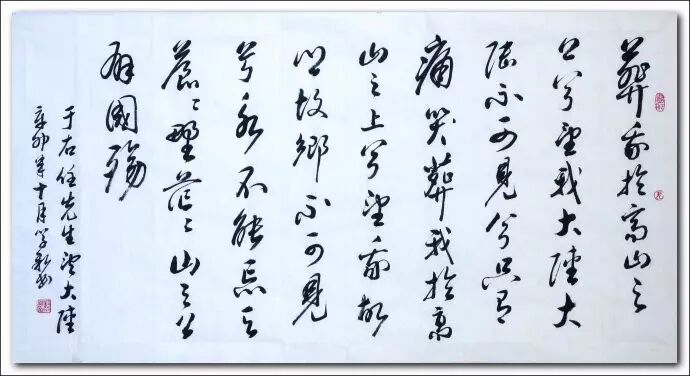 葬我於高山之
上兮望我大陸大
陸不可見兮只有
痛哭葬我於高
山之上兮望我故
鄉故鄉不可見
兮永不能忘天
蒼々野茫々山之上
有國殤
于右任先生望大陸
辛卯年十月